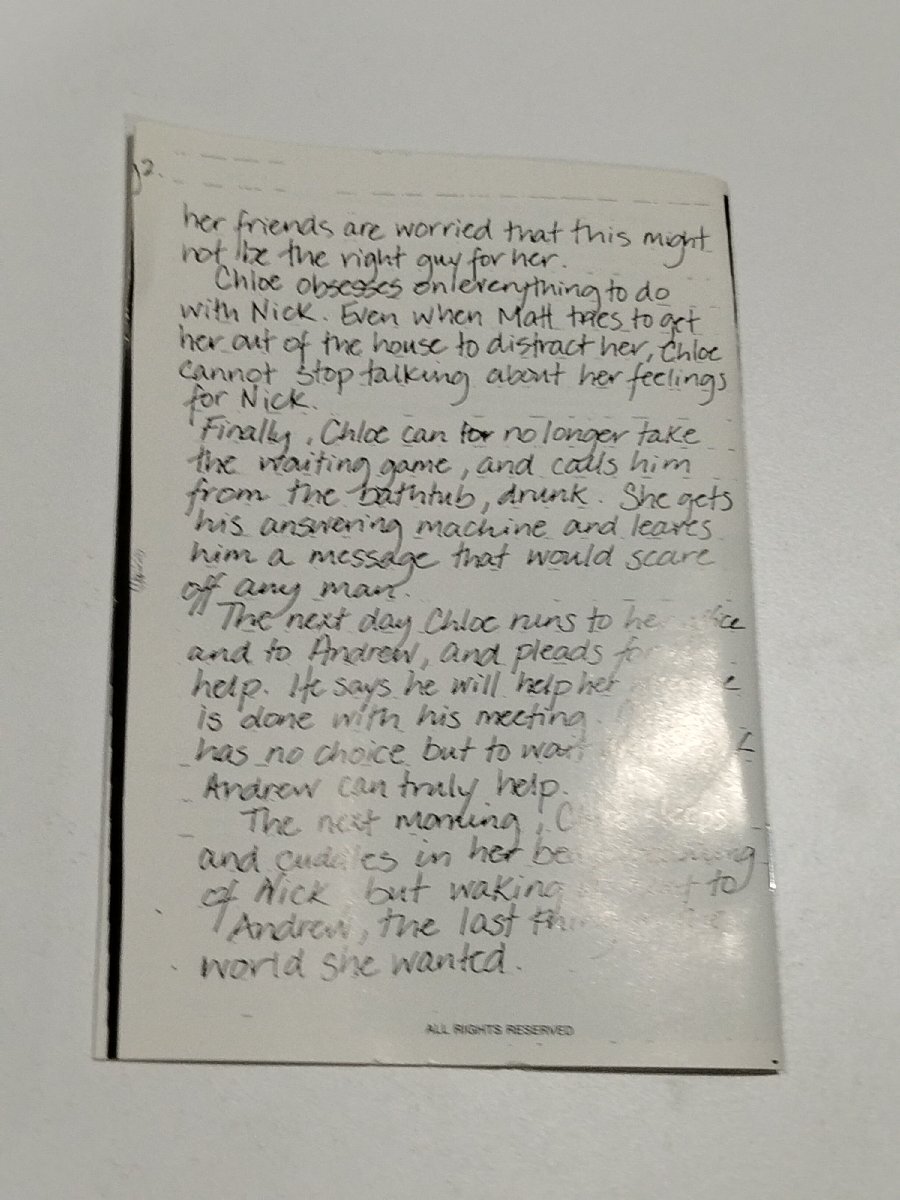 2.
her friends are worried that this might
not be the right guy for her.
Chloe obsesses on everything to do
with Nick. Even when Matt tries to get
her out of the house to distract her, Chloe
cannot stop talking about her feelings
for Nick.
Finally, Chloe can for no longer take
the waiting game, and calls him
from the bathtub, drunk. She gets
his answering machine and leaves
him a message that would scare
off any man.
The next day Chloe runs to her
and to Andrew, and pleads for
help. He says he will help her
is done with his meeting.
has no choice but to wait
Andrew can truly help.
The next morning,
and cuddles in her
of Nick but waking to
Andrew, the last
world she wanted.
ALL RIGHTS RESERVED